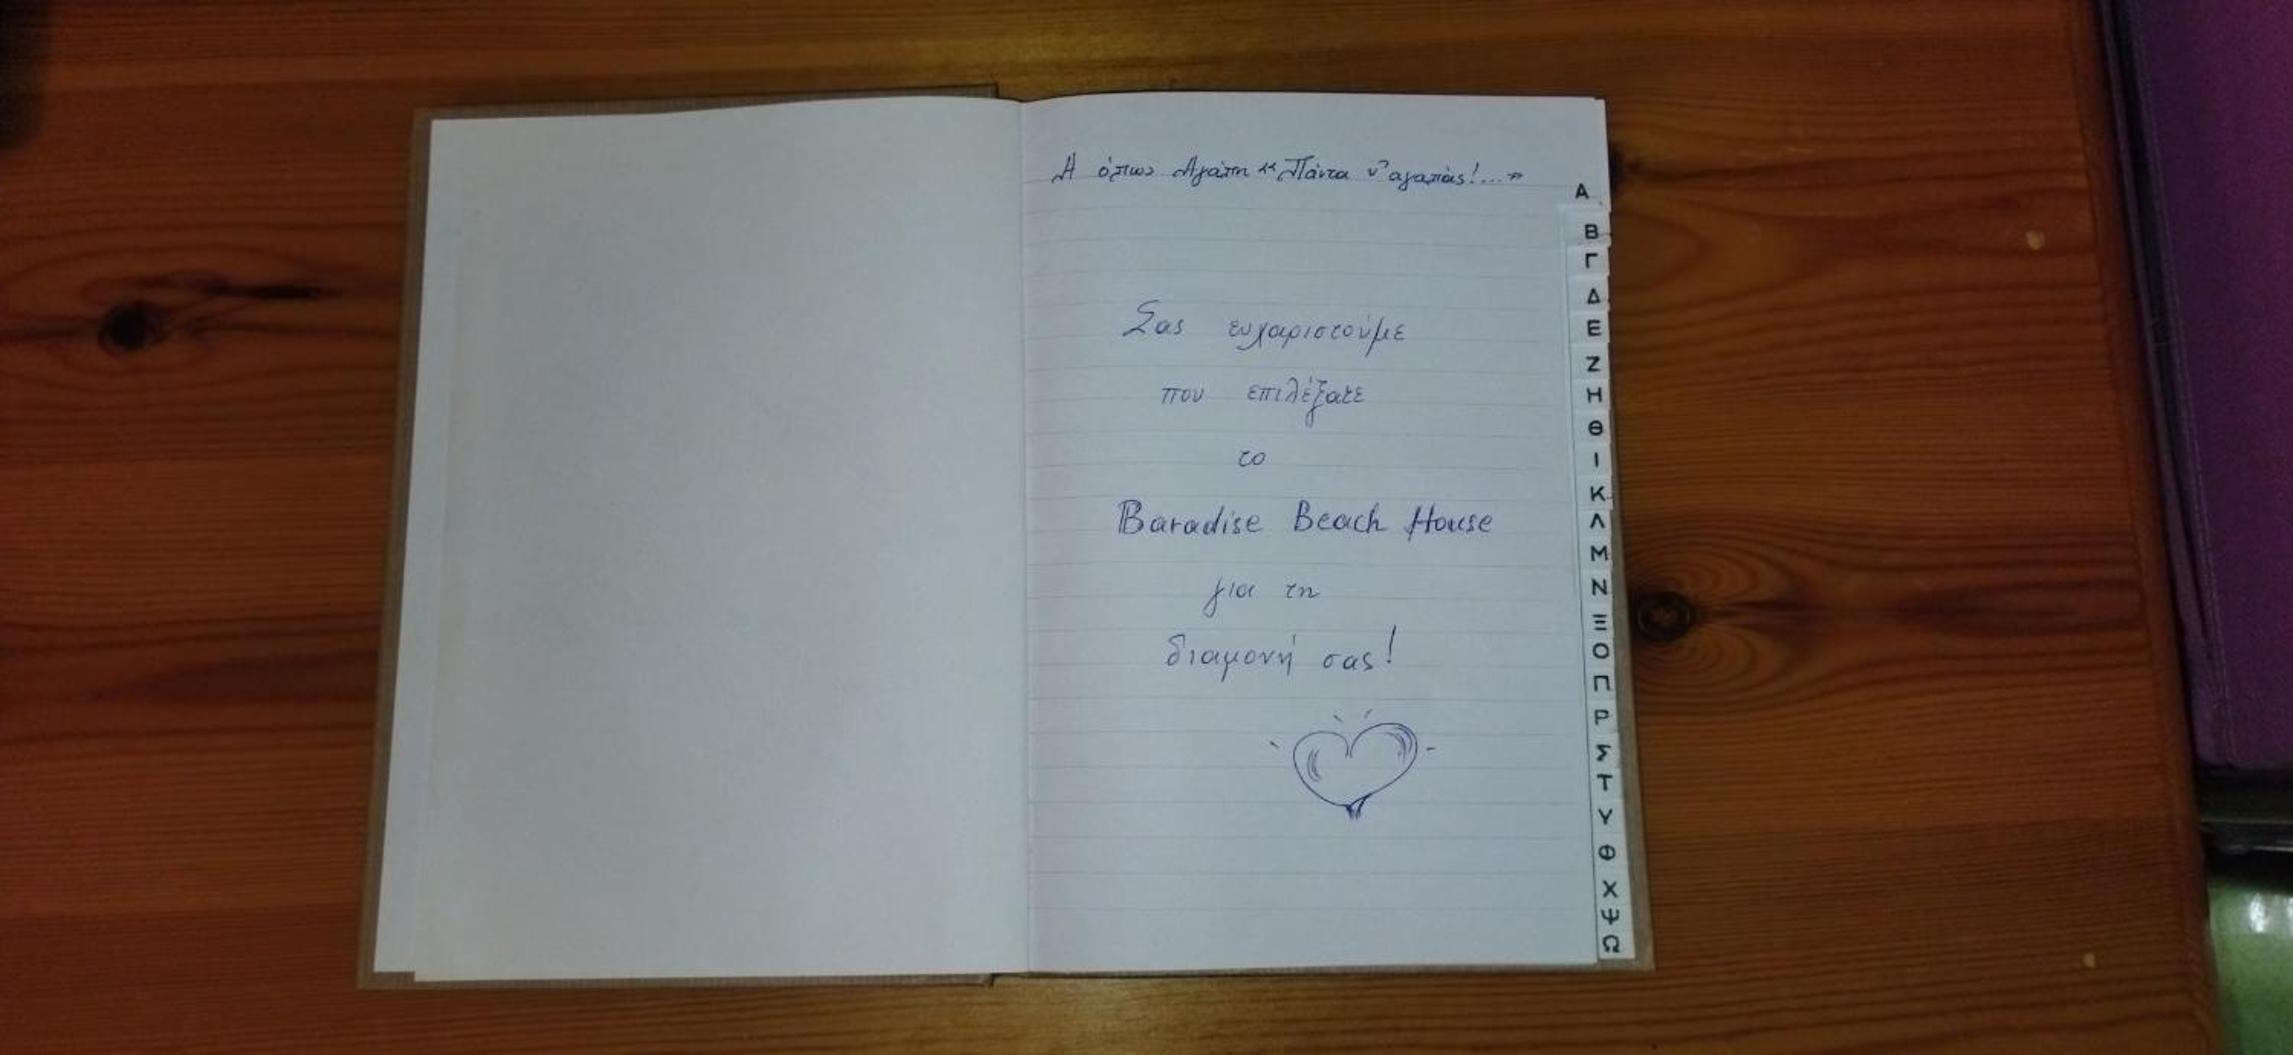 Α όπως Αγάπη «Πάντα ν' αγαπάς!...»
Σας ευχαριστούμε
που επιλέξατε
το
Baradise Beach House
για τη
διαμονή σας!
Α
Β
Γ
Δ
Ε
Ζ
Η
Θ
Ι
Κ
Λ
Μ
Ν
Ξ
Ο
Π
Ρ
Σ
Τ
Υ
Θ
Χ
Ψ
Ω